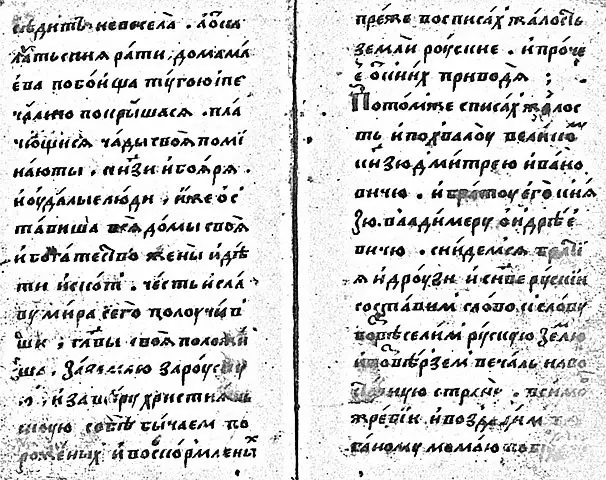 сѣдитъ невесела . а ѿ ка
латьскиꙗ рати, до мама
ева побоища тугою ипе
чалию покрышасѧ . пла
чющисѧ чады своѧ поми
наюты . кнѧзи и боѧрѧ .
и оудалые люди , иже ос
тавиша всѧ домы своѧ
и богатество жены и дѣ
ти и скот . честь и сла
ву мира сего получив
ши , главы своѧ положи
ша . за землю за роускую
и за вѣру христиѧнь
скую собѣ бычаем по
роженых и воскормлены
преже восписах жалость
земли роуские . и проче
е ѿ кних приводѧ ;
Потом же списах жалос
ть и похвалоу великому
кнѧзю дмитрею ивано
вичю . и братоу его кнѧ
зю . владимеру ондрѣе
вичю . снидемсѧ братиѣ
ꙗ и дроузи и сынове рускии
составим слово к слову
возвѣселим рускую землю
и возвѣрзем печаль на во
сточную страну . в симов
жребии и воздадим по
ганому момаю победу